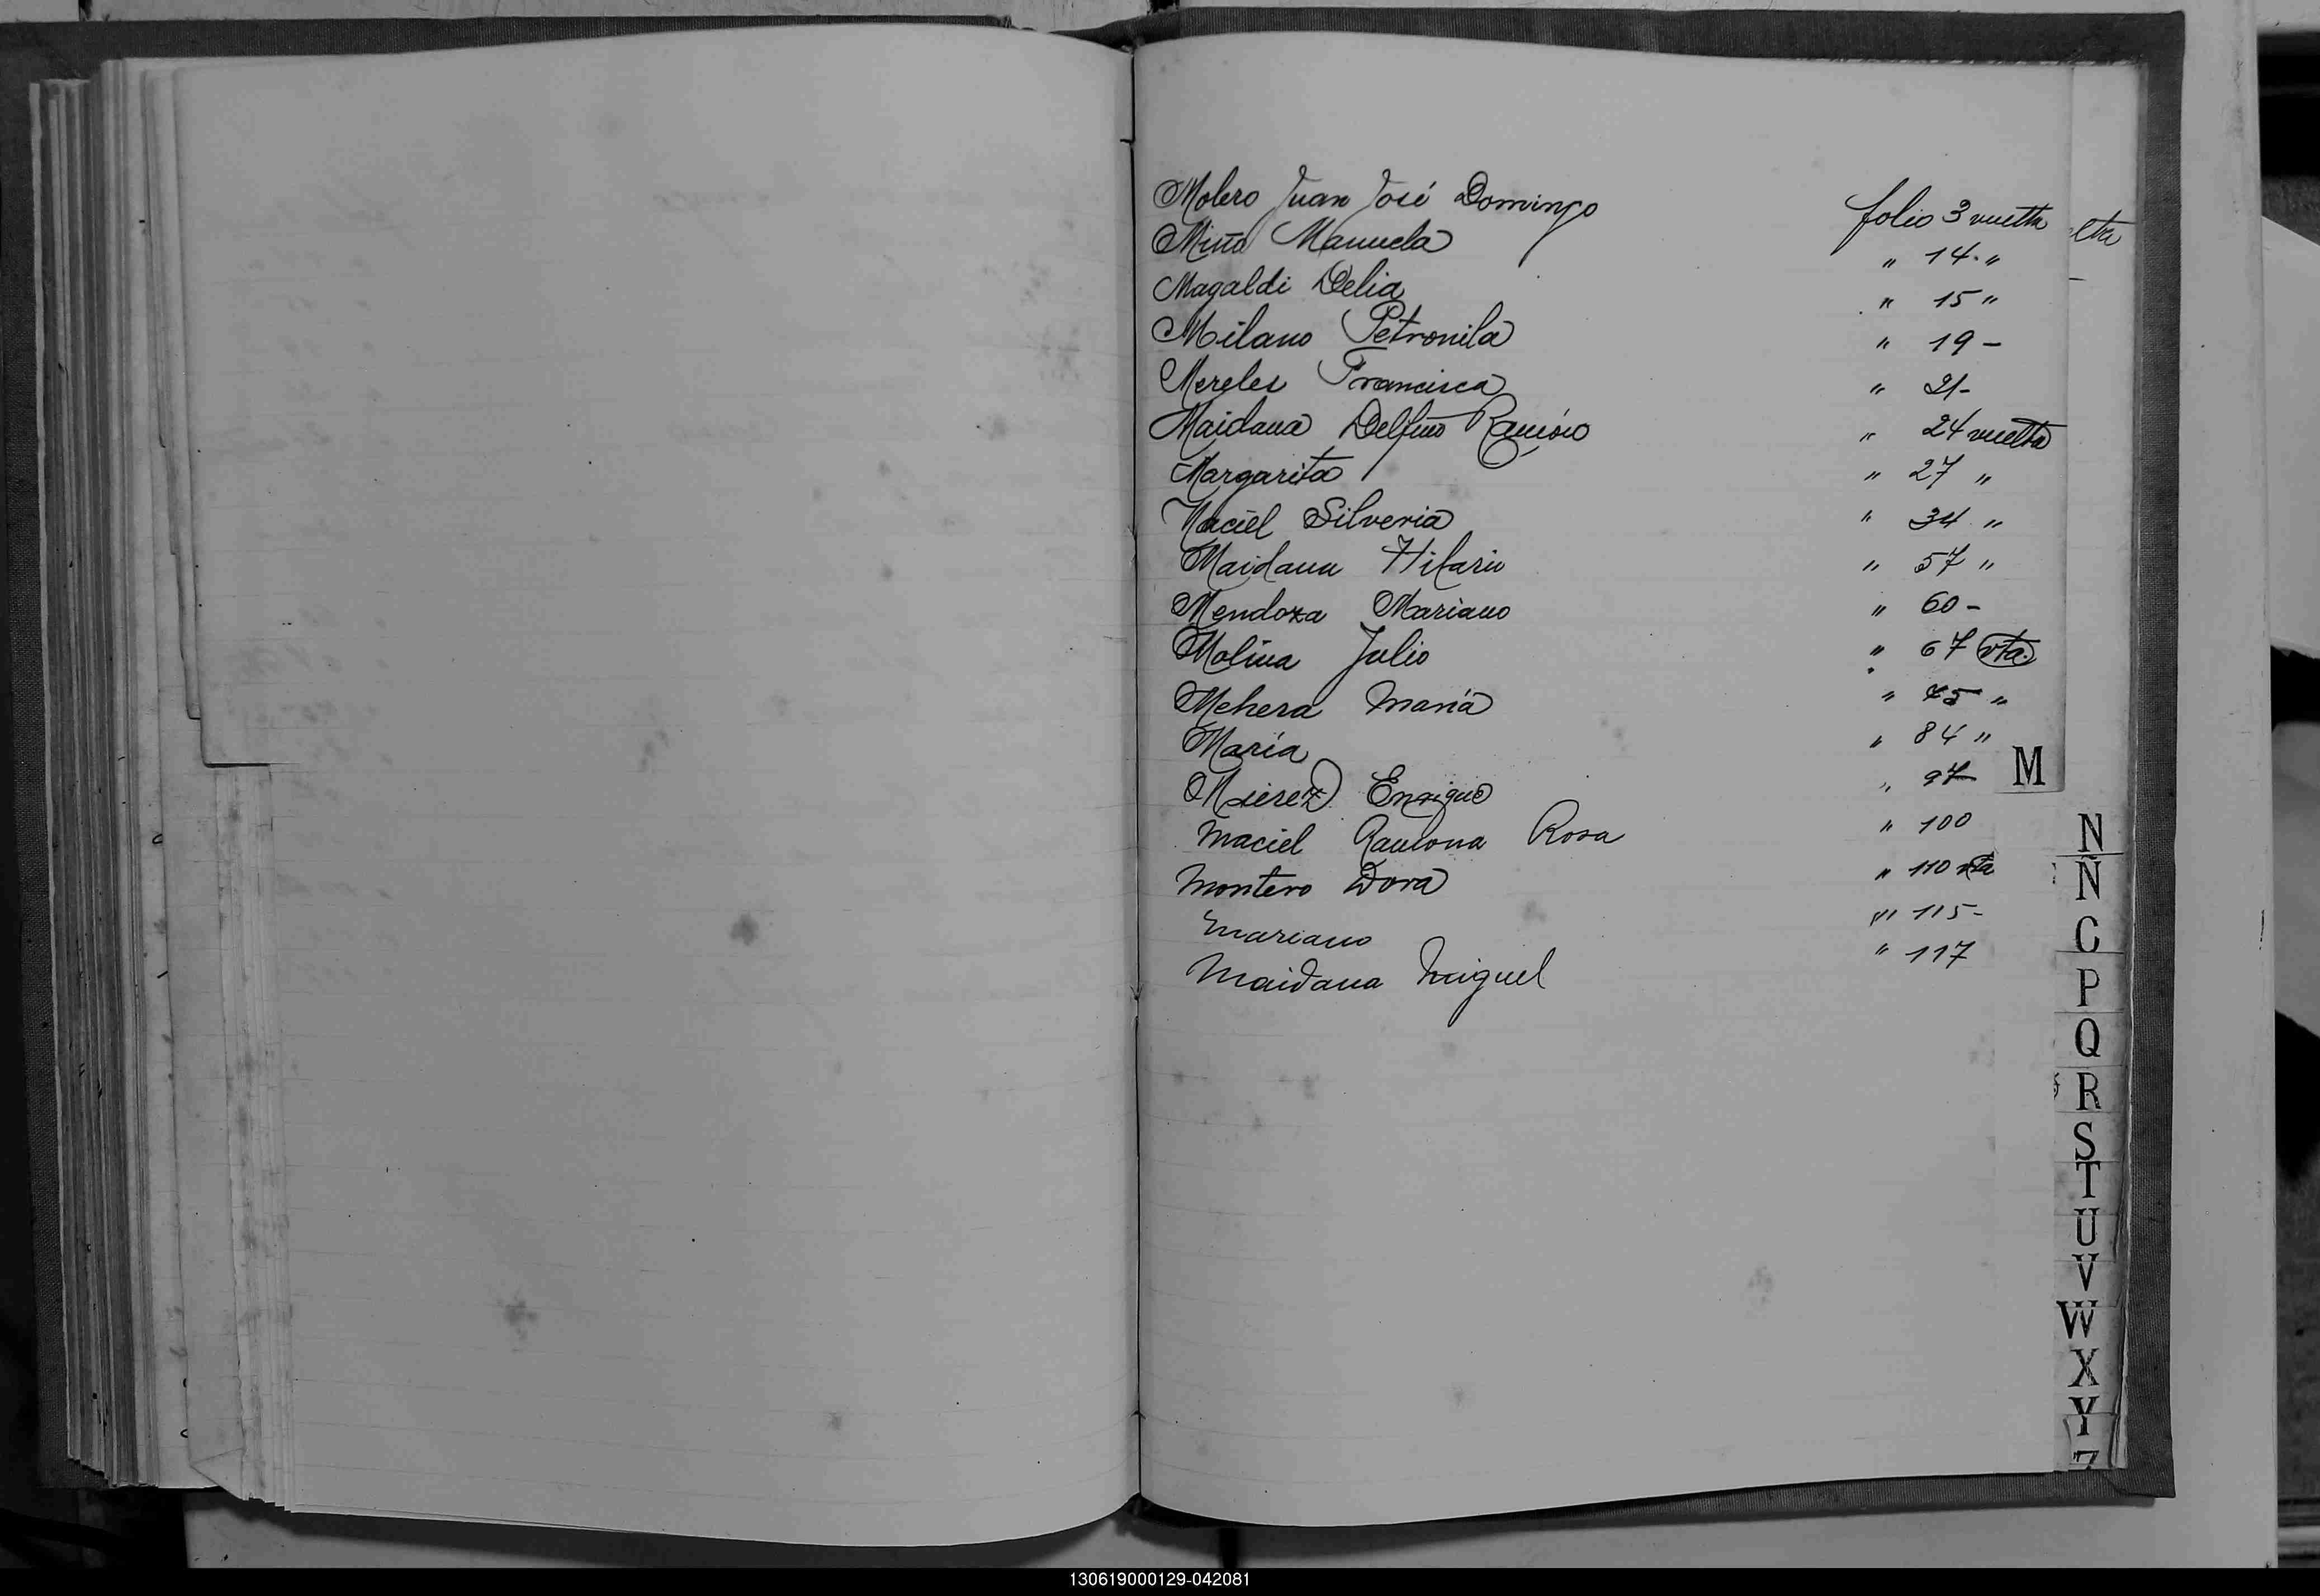 Molero Juan José Domingo folio 3 vuelta
Miño Manuela " 14. "
Magaldi Delia " 15 "
Milano Petronila " 19 -
Mereles Francisca " 21 -
Maidana Delfino Ramón " 24 vuelta
Margarita " 27 "
Maciel Silveria " 34 "
Maidana Hilario " 57 "
Mendoza Mariano " 60 -
Molina Julio " 67 vta.
Mehera María " 75 "
María " 84 "
Mierez Enrique " 97
Maciel Rosa " 100
Montero Dora " 110 vta
Mariano " 115 -
Maidana Miguel " 117
M
N
Ñ
P
Q
R
S
T
U
V
W
X
Y
Z
130619000129-042081